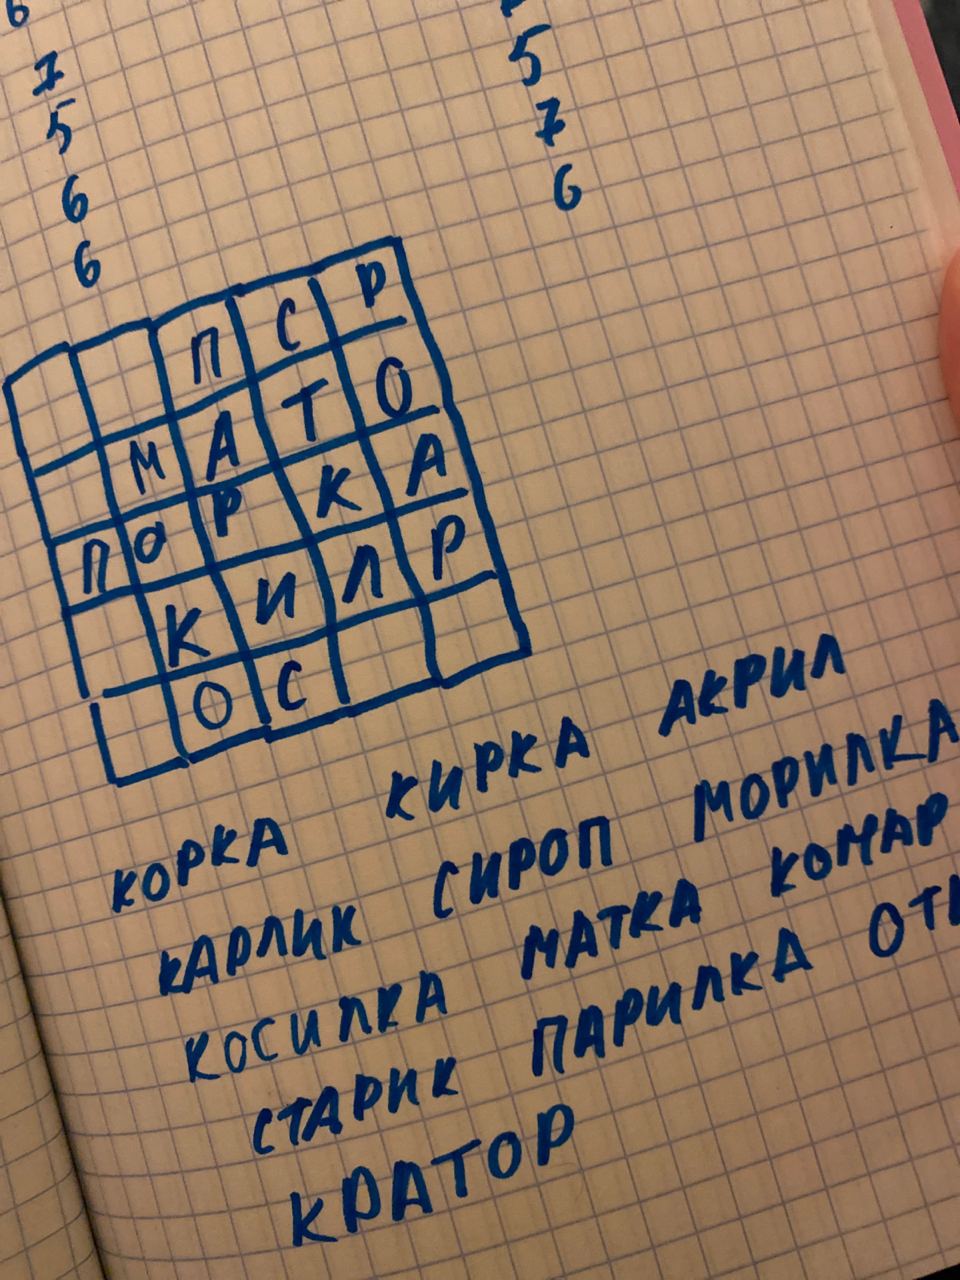 6
7 5
5 7
6 6
6
П С Р
М А Т О
П О Р К А
К И Л Р
О С
КОРКА КИРКА АКРИЛ
КАРЛИК СИРОП МОРИЛКА
КОСИЛКА МАТКА КОМАР
СТАРИК ПАРИЛКА
КРАТОР